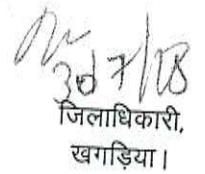 30/7/18
जिलाधिकारी,
खगड़िया।